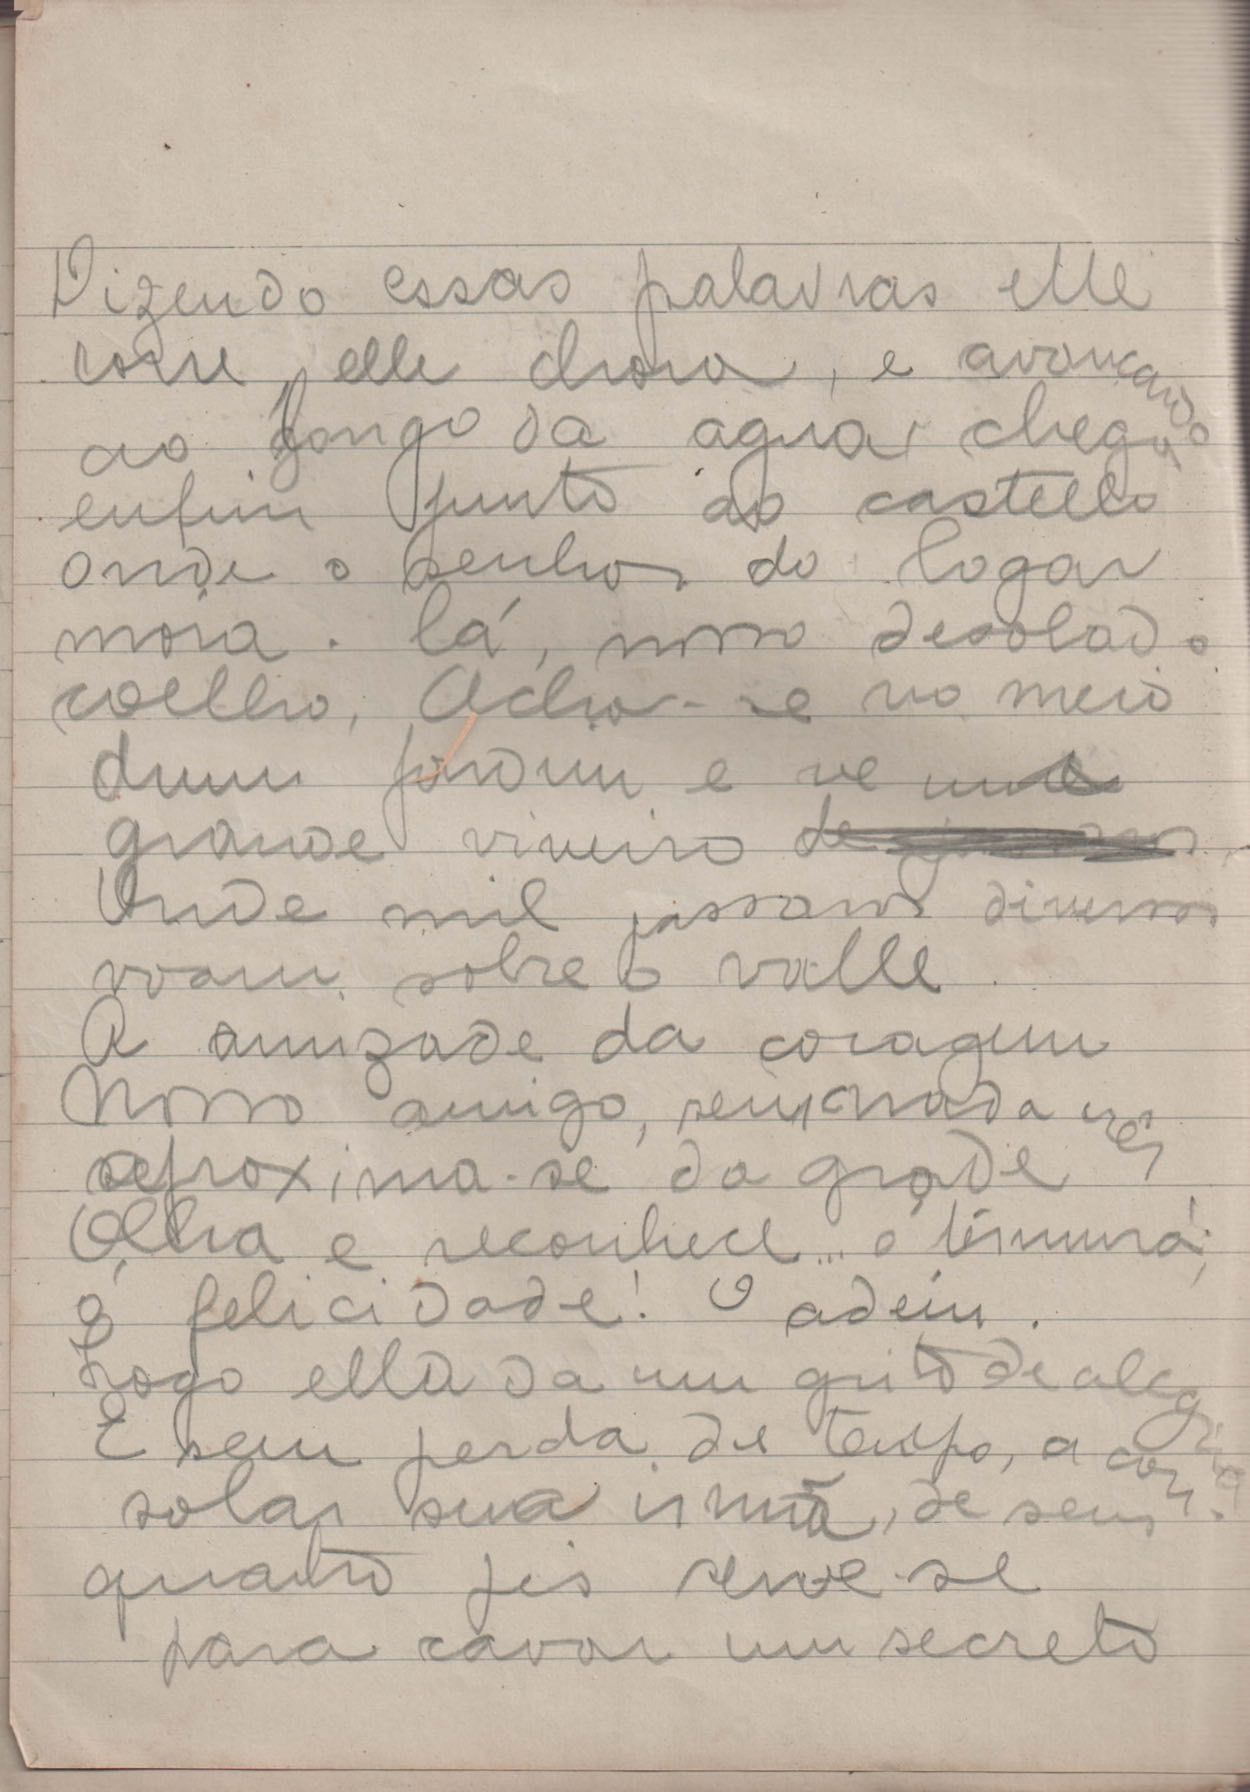 Dizendo essas palavras elle
corre, elle chora, e avançando
ao longo da agua, chega
enfim junto ao castello
onde o senhor do logar
mora. lá, nosso desolado
coelho, Acha-se no meio
dum jardim e ve um
grande viveiro de
Onde mil passaros diversos
voam sobre o valle
A amizade da coragem
Nosso amigo, sem nada
aproxima-se da grade
Olha e reconhece... ó ternura;
ó felicidade! O adem.
Logo ella da um grito de alegria.
E sem perda de tempo, a con
solar sua irmã, de seus
quatro pés serve-se
para cavar um secreto